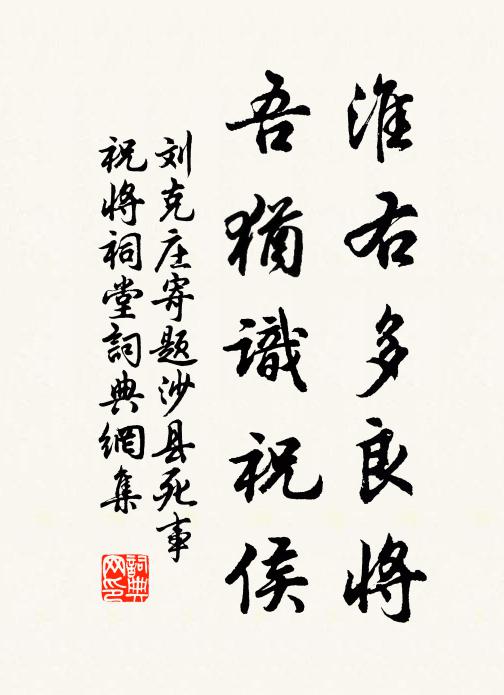 淮右多良将
吾犹識祝侯
刘克庄寄题沙县死事
祝将祠堂詞典網集
詞典
网印